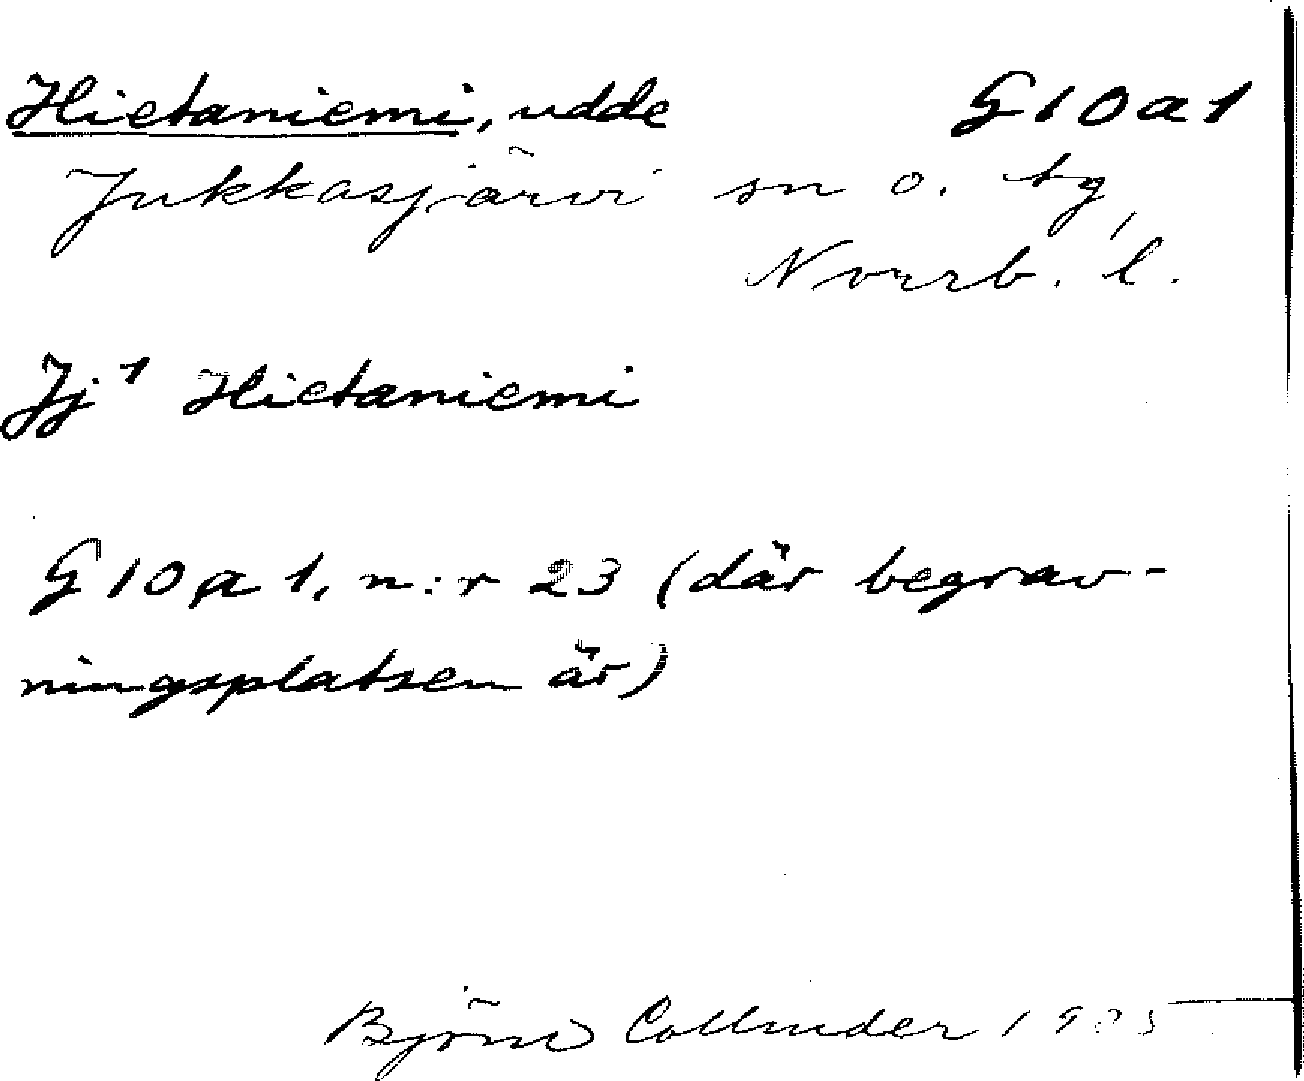 Hietaniemi, udde G10a1
Jukkasjärvi sn o. tg,
Norrb. l.
Jj¹ Hietaniemi
G10a1, n:r 23 (där begrav-
ningsplatsen är)
Björn Collinder